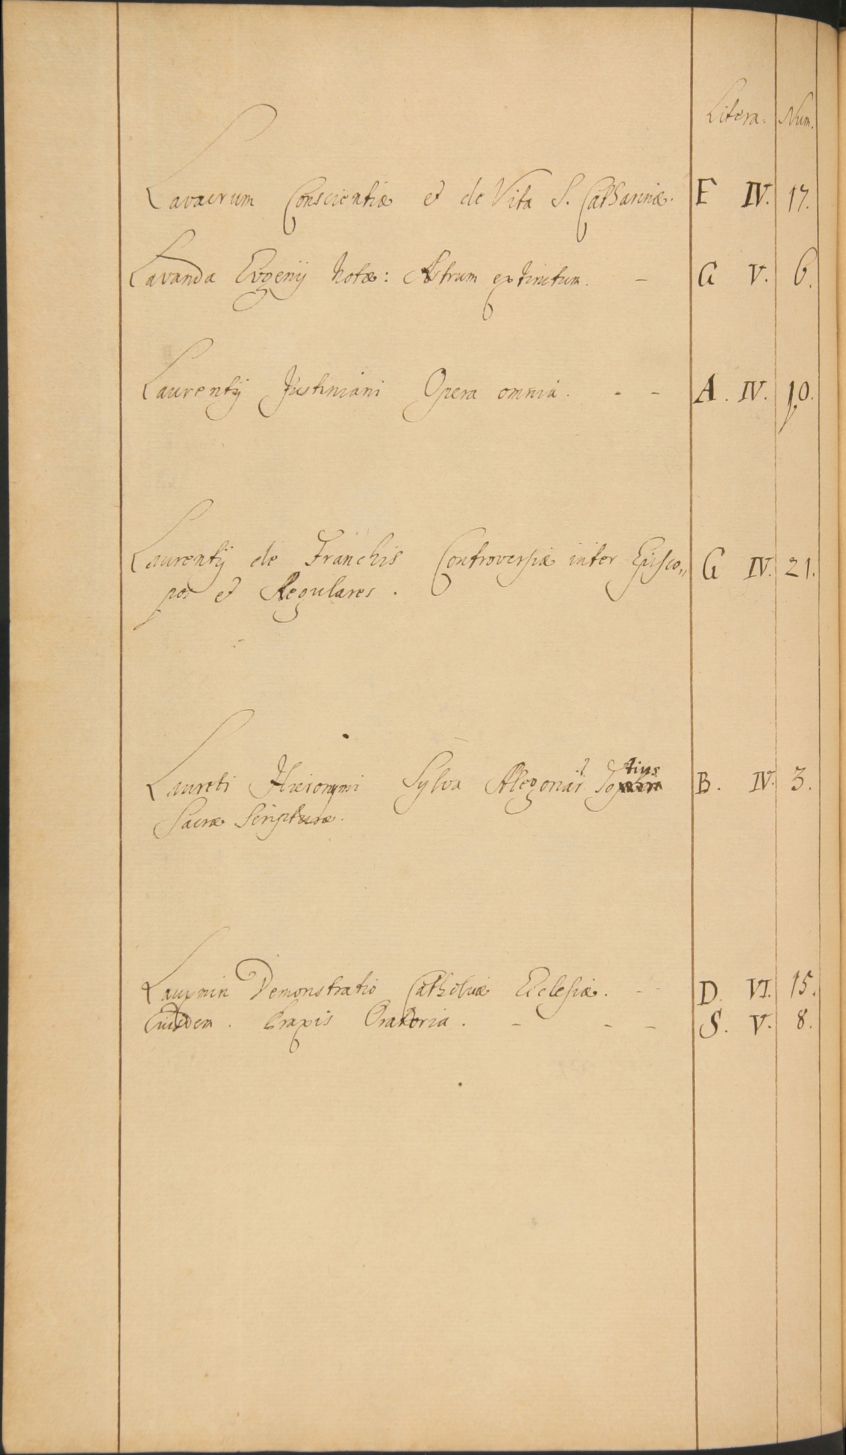 Litera. Num.
Lavacrum Conscientiæ et de Vita S. Catharinæ. F IV. 17.
Lavanda Evgenij Notæ: Astrum extinctum. — G V. 6.
Laurentij Justiniani Opera omnia. - - A. IV. 10.
Laurentij de Franchis Controversiæ inter Episco,, G IV. 21.
pos et Regulares.
Laureti Hieronymi Sylva Allegoriar̃ tius B. IV. 3.
Sacræ Scripturæ.
Laurmin Demonstratio Catholicæ Ecclesiæ. - - D. VI. 15.
Eiusdem. Praxis Oratoria. - - - S. V. 8.